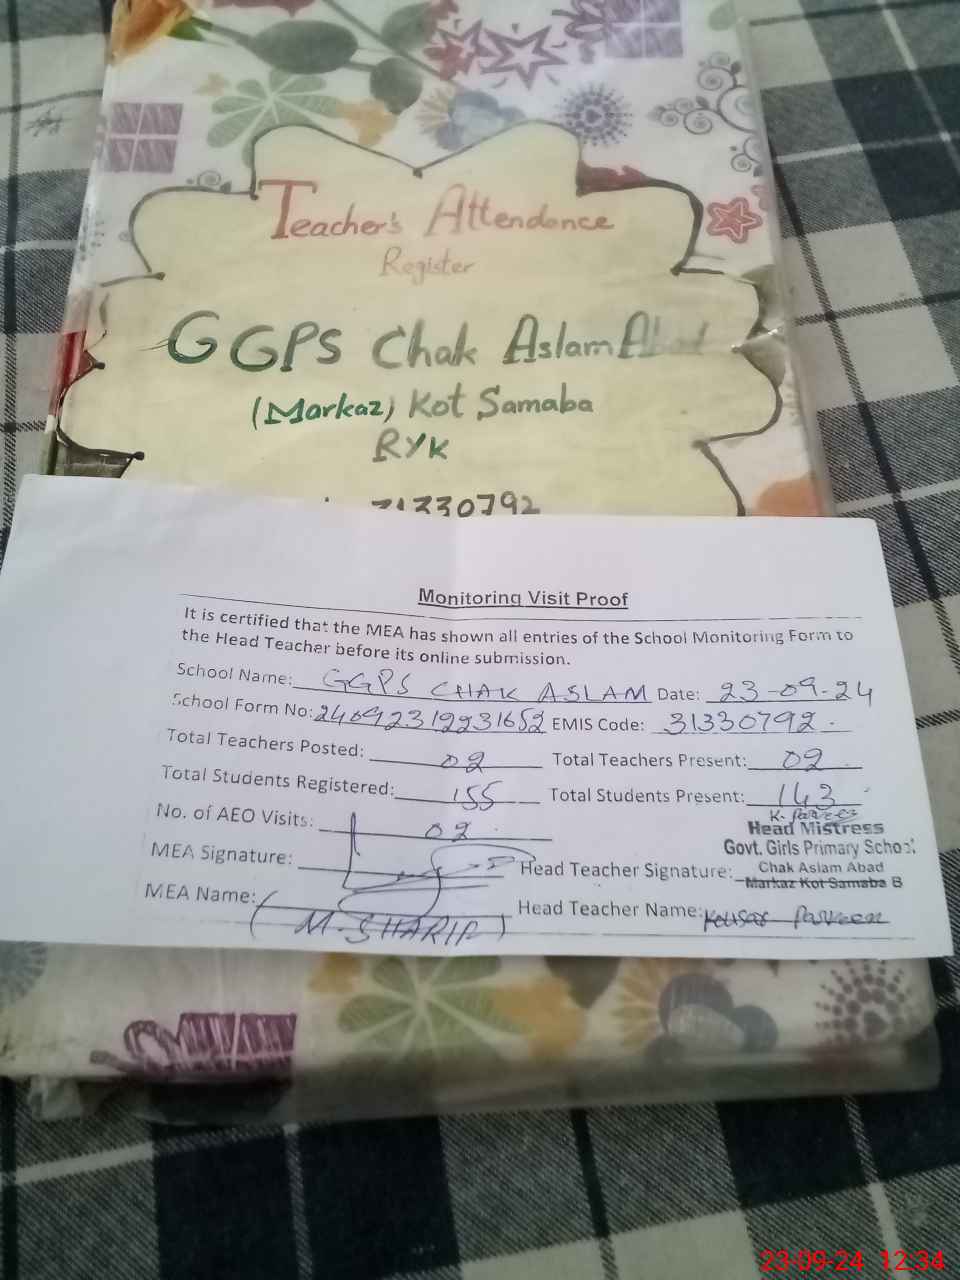 Teacher's Attendence
Register
GGPS Chak Aslam Abad
(Markaz) Kot Samaba
RYK
31330792
Monitoring Visit Proof
It is certified that the MEA has shown all entries of the School Monitoring Form to
the Head Teacher before its online submission.
School Name: GGPS CHAK ASLAM Date: 23-09-24
School Form No: 24092312231652 EMIS Code: 31330792
Total Teachers Posted: 02 Total Teachers Present: 02
Total Students Registered: 155 Total Students Present: 143
No. of AEO Visits: 02
K. Parveen
Head Mistress
Govt. Girls Primary School
MEA Signature: Head Teacher Signature: Chak Aslam Abad
Markaz Kot Samaba B
MEA Name: (M. SHARIF) Head Teacher Name: Kousar Parveen
23-09-24 12:34